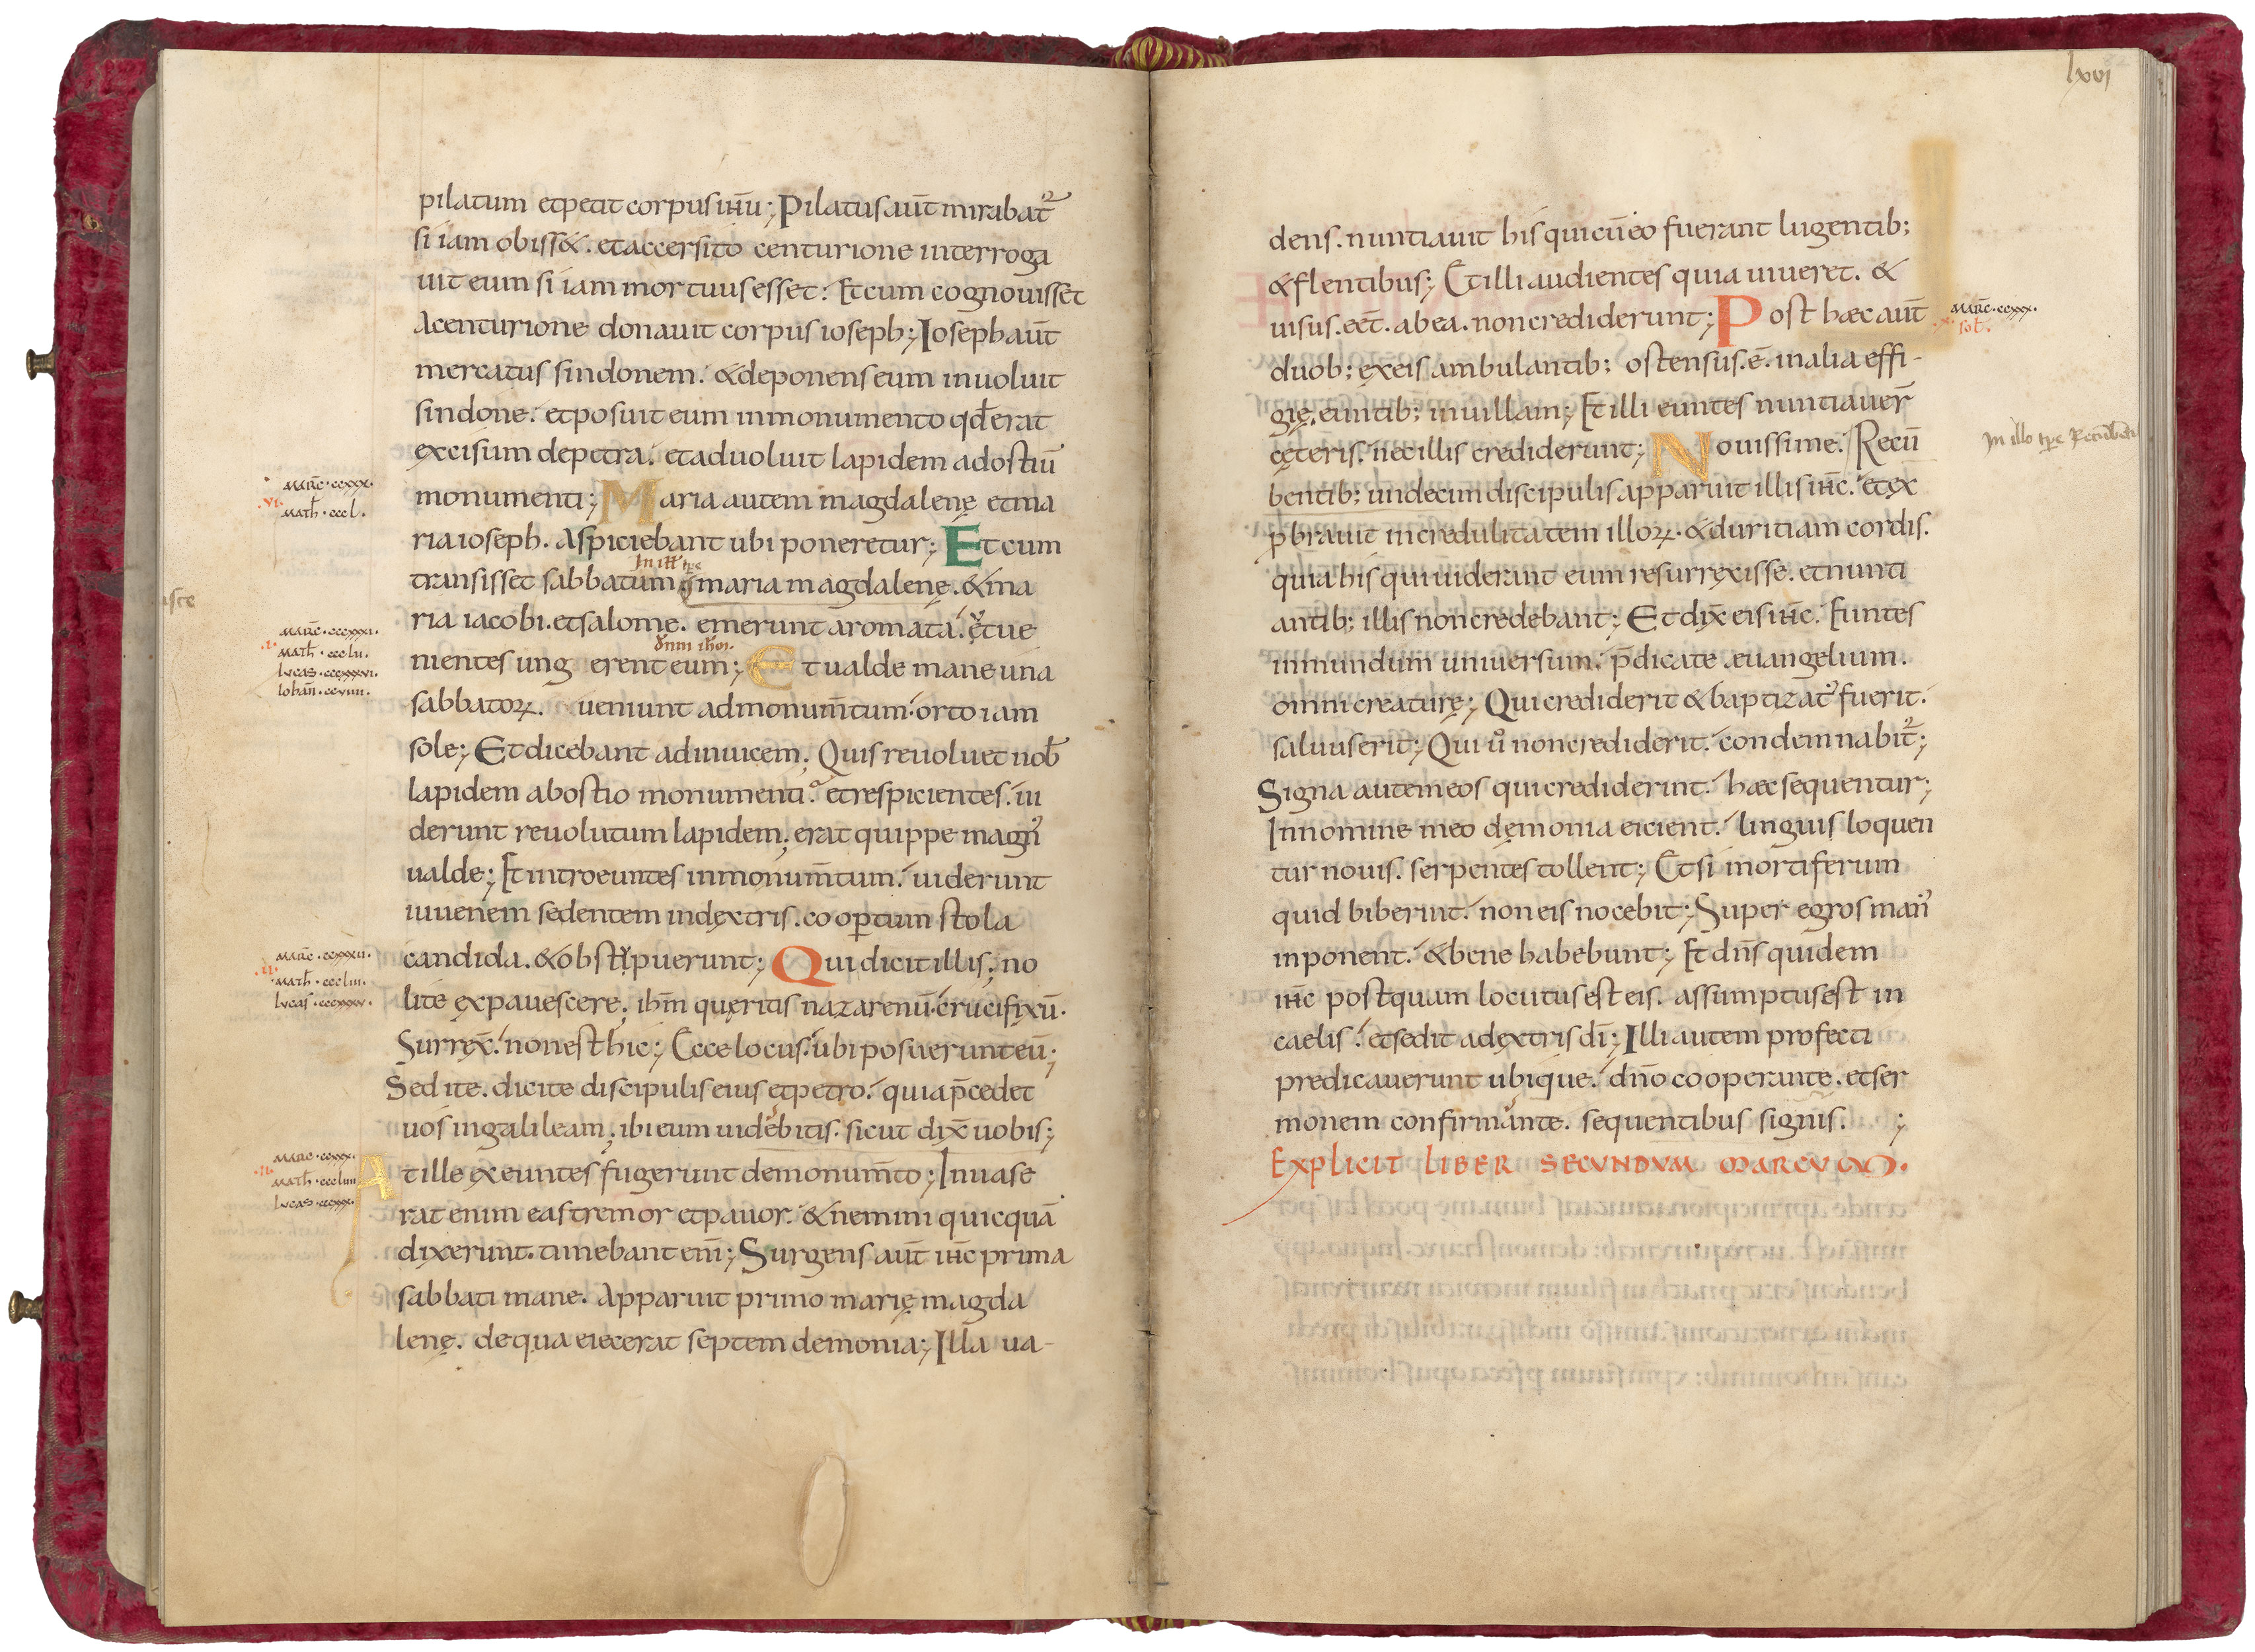 pilatum et petit corpus ih̅u; Pilatus aut̅ mirabat᷑
si iam obiss&. et accersito centurione interroga
uit eum si iam mortuus esset: Et cum cognouisset
a centurione donauit corpus ioseph; Ioseph aut̅
mercatus sindonem. & deponens eum inuoluit
sindone. et posuit eum in monumento qd̅ erat
excisum de petra. et aduoluit lapidem ad ostiu̅
monumenti; Maria autem magdalenę et ma
marc̅. ccxxx.
vi.
math̅. cccl.
ria ioseph. Aspiciebant ubi poneretur; Et cum
In ill̅ tp̅e
transisset sabbatum maria magdalenę. & ma
ria iacobi. et salome. emerunt aromata. ętue
dn̅m ih̅m.
nientes ung erent eum; Et ualde mane una
marc̅. ccxxxi.
i.
math̅. ccclii.
lucas. cccxxxvi.
iohan̅. ccviiii.
sabbatoꝝ. ueniunt ad monum̅tum. orto iam
sole; Et dicebant adinuicem; Quis reuoluet nob̅
lapidem ab ostio monumenti. et respicientes. ui
derunt reuolutum lapidem; erat quippe magn᷒
ualde; Et introeuntes in monum̅tum. uiderunt
iuuenem sedentem in dextris. coopertum stola
candida. & obstỵpuerunt; Qui dicit illis; no
marc̅. ccxxxii.
ii.
math̅. cccliii.
lucas. cccxxxv.
lite expauescere; ihm̅ queritis nazarenu̅. crucifixu̅.
Surrex̅. non est hic; Ecce locus. ubi posuerunt eu̅;
Sed ite. dicite discipulis eius et petro. quia p̅cedet
uos in galileam; ibi eum uidebitis. sicut dix̅ uobis;
At ille exeuntes fugerunt de monum̅to; Inuase
marc. ccxxx.
ii.
math̅. cccliiii
lucas. cccxxx.
rat enim eas tremor et pauor. & nemini quicqua̅
dixerunt. timebant eni̅; Surgens aut̅ ih̅c prima
sabbati mane. Apparuit primo marię magda
lenę. de qua eiecerat septem demonia; Illa ua-
iste
lxvi
dens. nuntiauit his qui cu̅ eo fuerant lugentib;
& flentibus; Et illi audientes quia uiueret. &
uisus. eet̅. ab ea. non crediderunt; Post hæc aut̅
marc̅. ccxxx.
x.
sol̅.
duob; ex eis ambulantib; ostensus. e̅. in alia effi-
gię, euntib; in uillam; Et illi euntes nuntiauer̅
cęteris. nec illis crediderunt; Nouissime. Recu̅
In illo tp̅e Recu̅benti
bentib; undecim discipulis apparuit illis ih̅c. et ex
p̅brauit incredulitatem illoꝝ. & duritiam cordis.
quia his qui uiderant eum resurręxisse. et nunti
antib; illis non credebant; Et dix̅ eis ih̅c. Euntes
in mundum uniuersum. p̅dicate euangelium.
omni creaturę; Qui crediderit & baptizat᷒ fuerit.
saluus erit; Qui u̅ non crediderit. condemnabit᷑;
Signa autem eos qui crediderint. hæc sequentur;
In nomine meo dęmonia eicient. linguis loquen
tur nouis. serpentes tollent; Et si mortiferum
quid biberint. non eis nocebit; Super egros man᷒
inponent. & bene habebunt; Et dn̅s quidem
ih̅c postquam locutus est eis. assumptus est in
caelis. et sedit adextris di̅; Illi autem profecti
predicauerunt ubique. dn̅o cooperante. et ser
monem confirmante. sequentibus signis. ;
EXPLICIT LIBER SECUNDUM MARCUM.